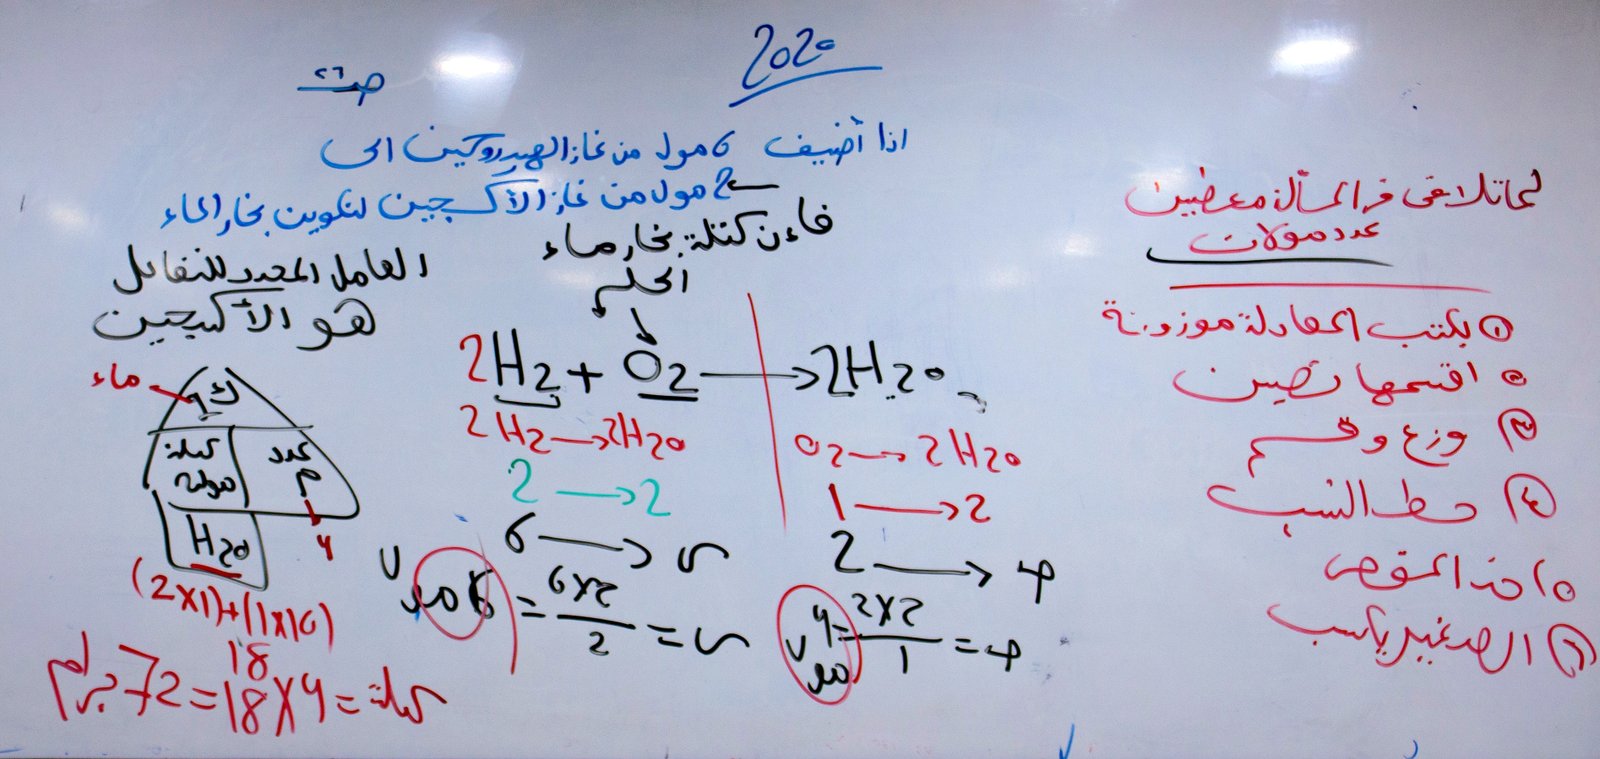 2020
ص ٢٦
اذا أضيف 6 مول من غاز الهيدروجين الى
2 مول من غاز الأكسجين لتكوين بخار الماء
فاءن كتلة بخار ماء
العامل المحدد للتفاعل
هو الأكسجين
2H2 + O2 → 2H2O
2H2 → 2H2O
2 → 2
6 → س
= 6x2 / 2 = س
6 مول
O2 → 2H2O
1 → 2
2 → ص
4 = 2x2 / 1 = ص
4 مول
ماء
ك
كتلة مولية
عدد م
4
H2O
(2x1)+(1x16)
18
72 جرام = 18x4 = كتلة
لما تلاقى فى المسألة معطيين
عدد مولات
① بكتب المعادلة موزونة
② اقسمها نصين
③ وزع وقسم
④ حط النسب
⑤ خد المقص
⑥ الصغير يكسب